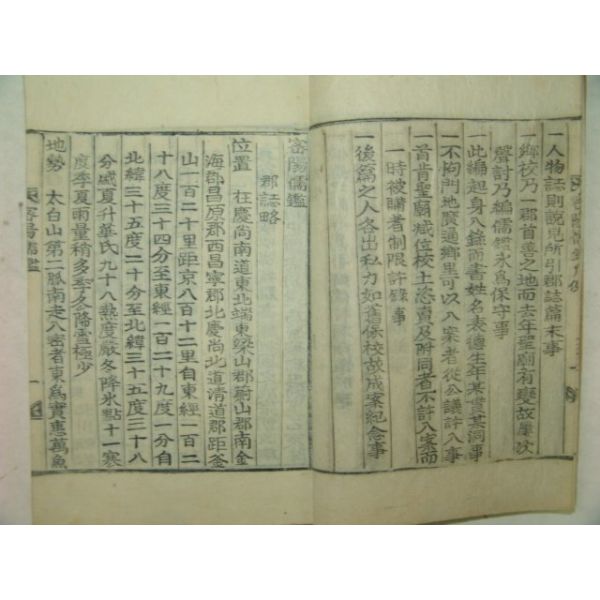 一人物誌則說見所引郡誌篇末事
一鄉校乃一郡首善之地而去年聖廟有變故屢次
聲討乃編儒鑑永爲保守事
一此編起身入錄而書姓名表德生年某貫某洞事
一不拘門地麽逼鄉里可以入案者從公議許入事
一首肯聖廟減位校土恣賣及附同者不許入案而
一時被賺者制限許錄事
一後篇之人各出私力如舊保校故成案紀念事
密陽儒鑑
郡誌略
位置 在慶尚南道東北端東梁山郡蔚山郡南金
海郡昌原郡西昌寧郡北慶尚北道清道郡距釜
山一百二十里距京八百十二里自東經一百二
十八度三十四分至東經一百二十九度一分自
北緯三十五度二十分至北緯三十五度三十八
分盛夏升華氏九十八熱度嚴冬降氷點十一寒
度季夏雨量稍多至冬降雪極少
地勢 太白山第二脈南走入密者東爲實惠萬魚
密陽儒鑑
一